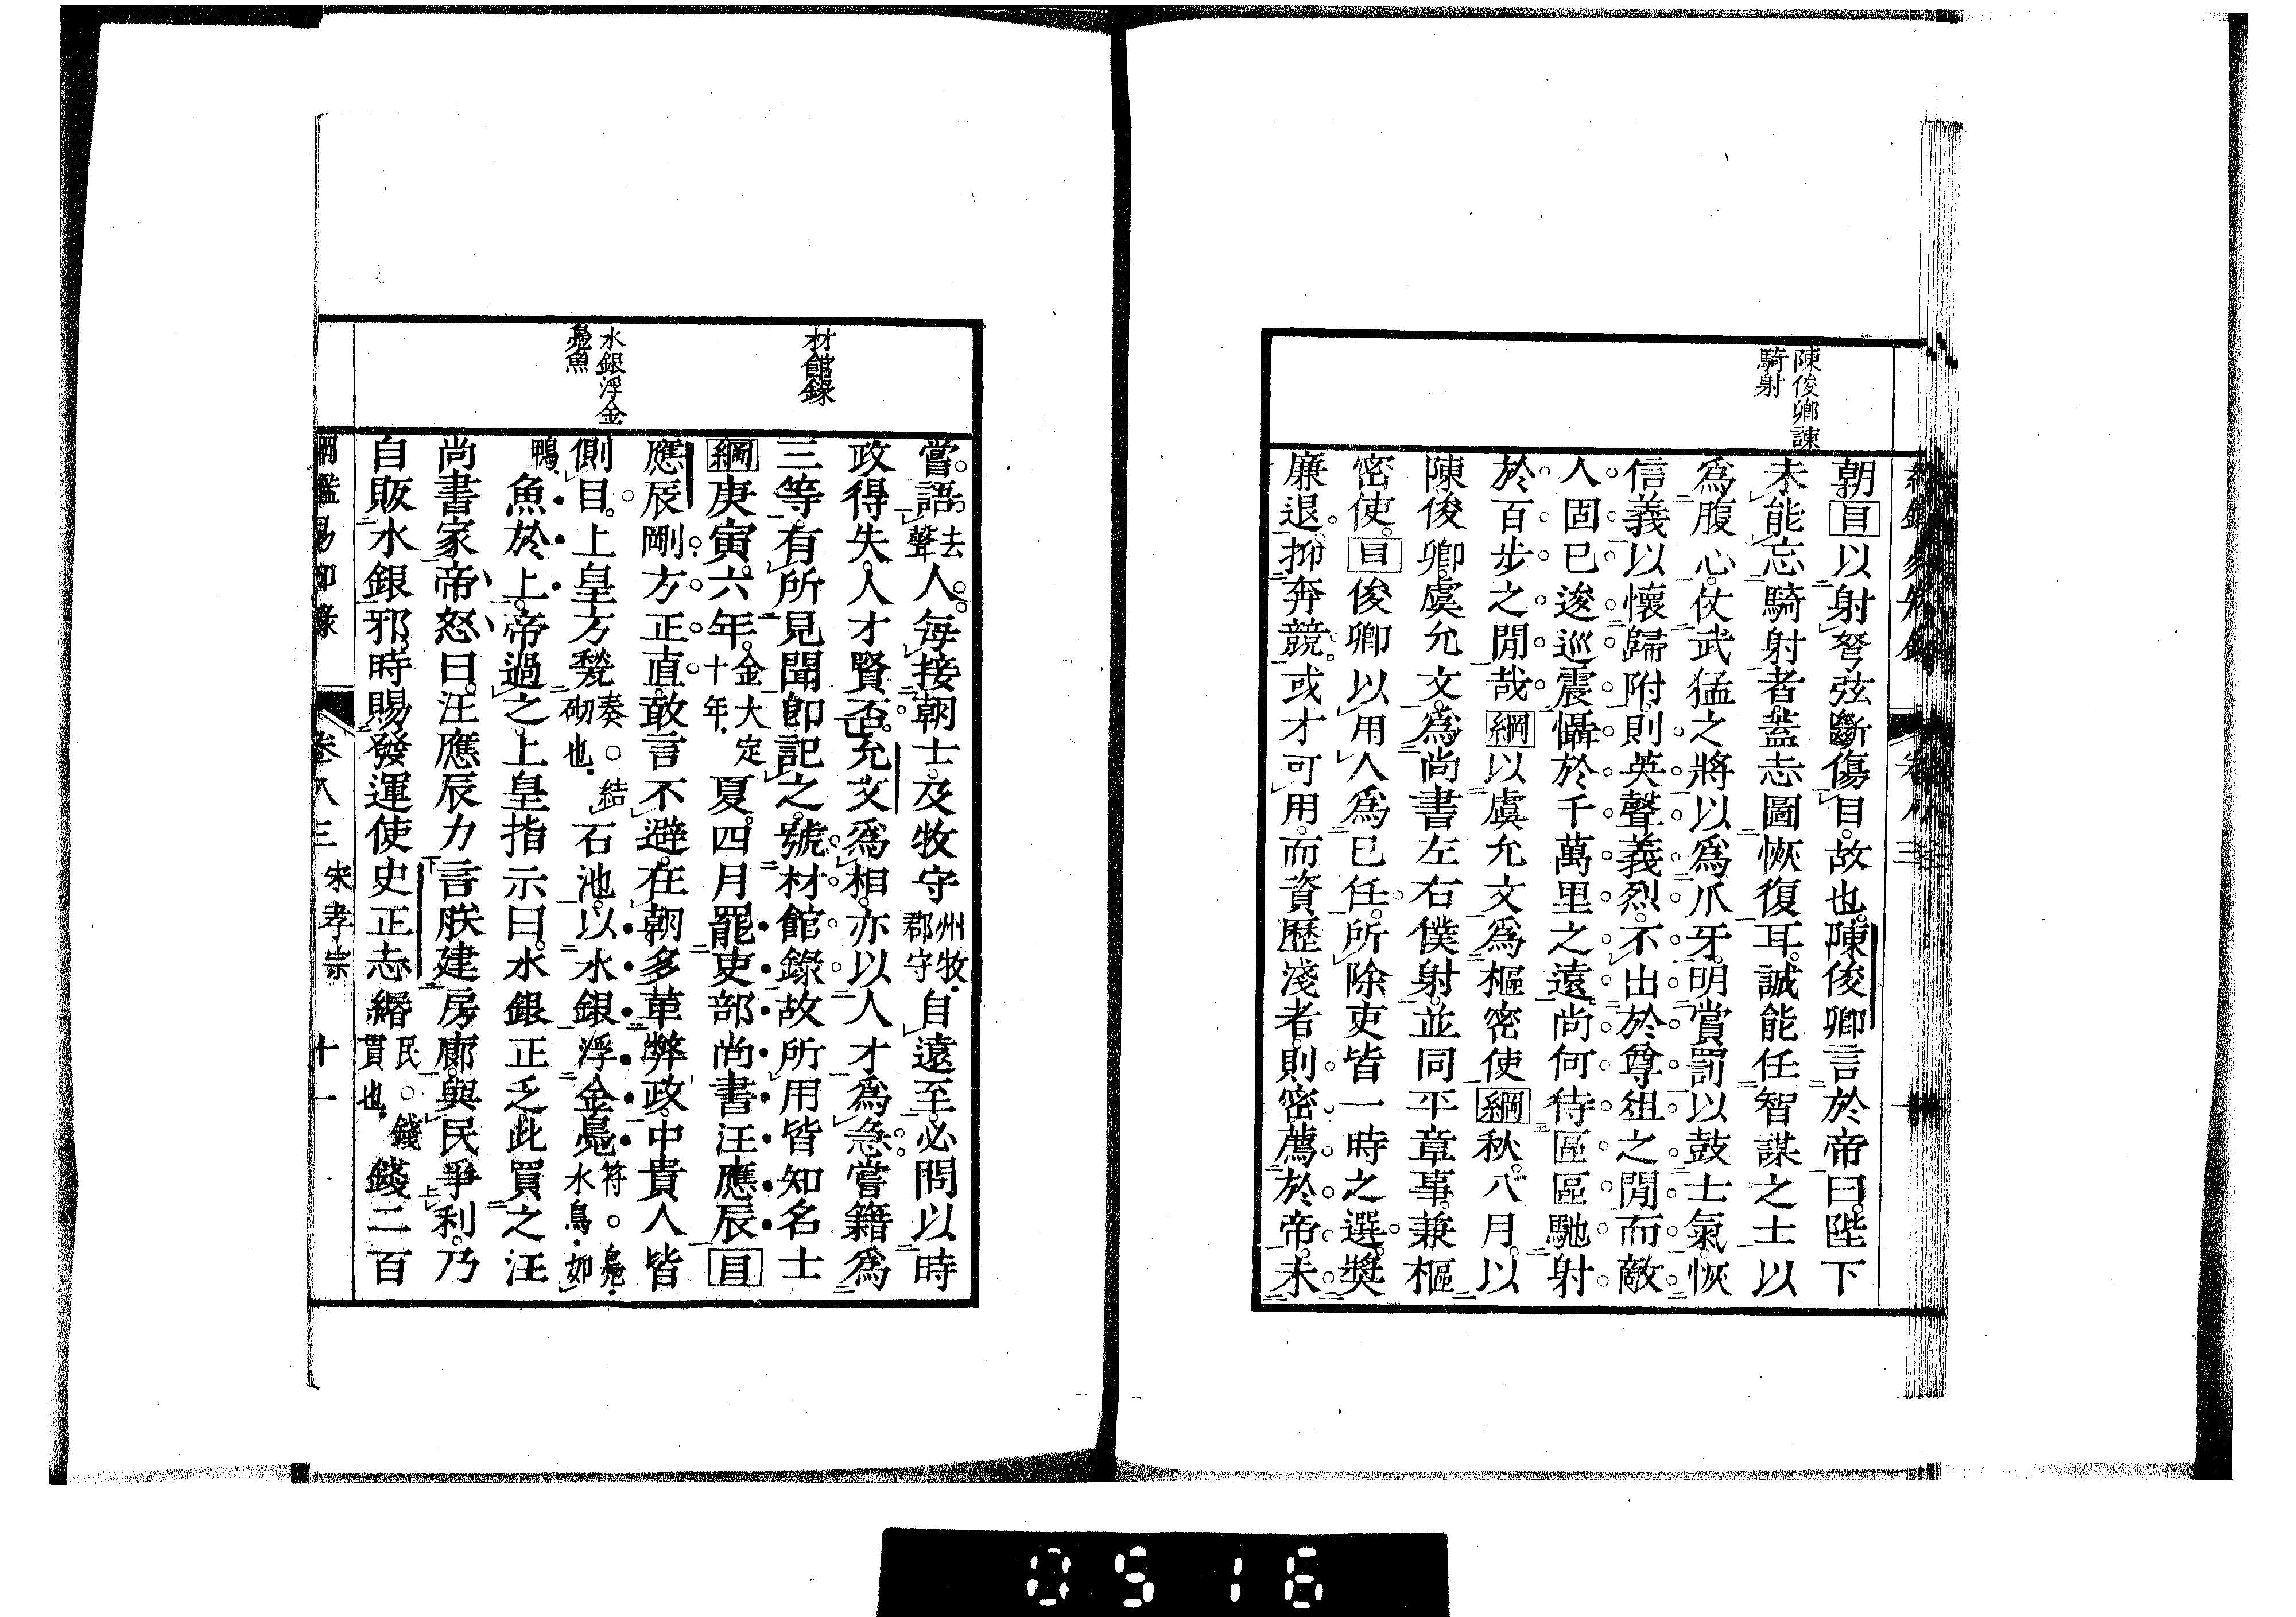 陳俊卿諫
騎射
朝目以射弩弦斷傷目故也陳俊卿言於帝曰陛下
未能忘騎射者蓋志圖恢復耳誠能任智謀之士以
爲腹心仗武猛之將以爲爪牙明賞罰以鼓士氣恢
信義以懷歸附則英聲義烈不出於尊俎之閒而敵
人固已逡巡震懾於千萬里之遠尚何待區區馳射
於百步之閒哉綱以虞允文爲樞密使綱秋八月以
陳俊卿虞允文爲尚書左右僕射並同平章事兼樞
密使目俊卿以用人爲己任所除吏皆一時之選獎
廉退抑奔競或才可用而資歷淺者則密薦於帝未
材館錄
水銀浮金
鳧魚
嘗語去聲人每接朝士及牧守州牧郡守自遠至必問以時
政得失人才賢否允文爲相亦以人才爲急嘗籍爲
三等有所見聞卽記之號材館錄故所用皆知名士
綱庚寅六年金大定十年夏四月罷吏部尚書汪應辰目
應辰剛方正直敢言不避在朝多革弊政中貴人皆
側目上皇方甃奏○結砌也石池以水銀浮金鳧符○鳧水鳥如
鴨魚於上帝過之上皇指示曰水銀正乏此買之汪
尚書家帝怒曰汪應辰力言朕建房廊與民爭利乃
自販水銀邪時賜發運使史正志緡民○錢貫也錢二百
綱鑑易知錄 卷八三 宋孝宗 十一
0516